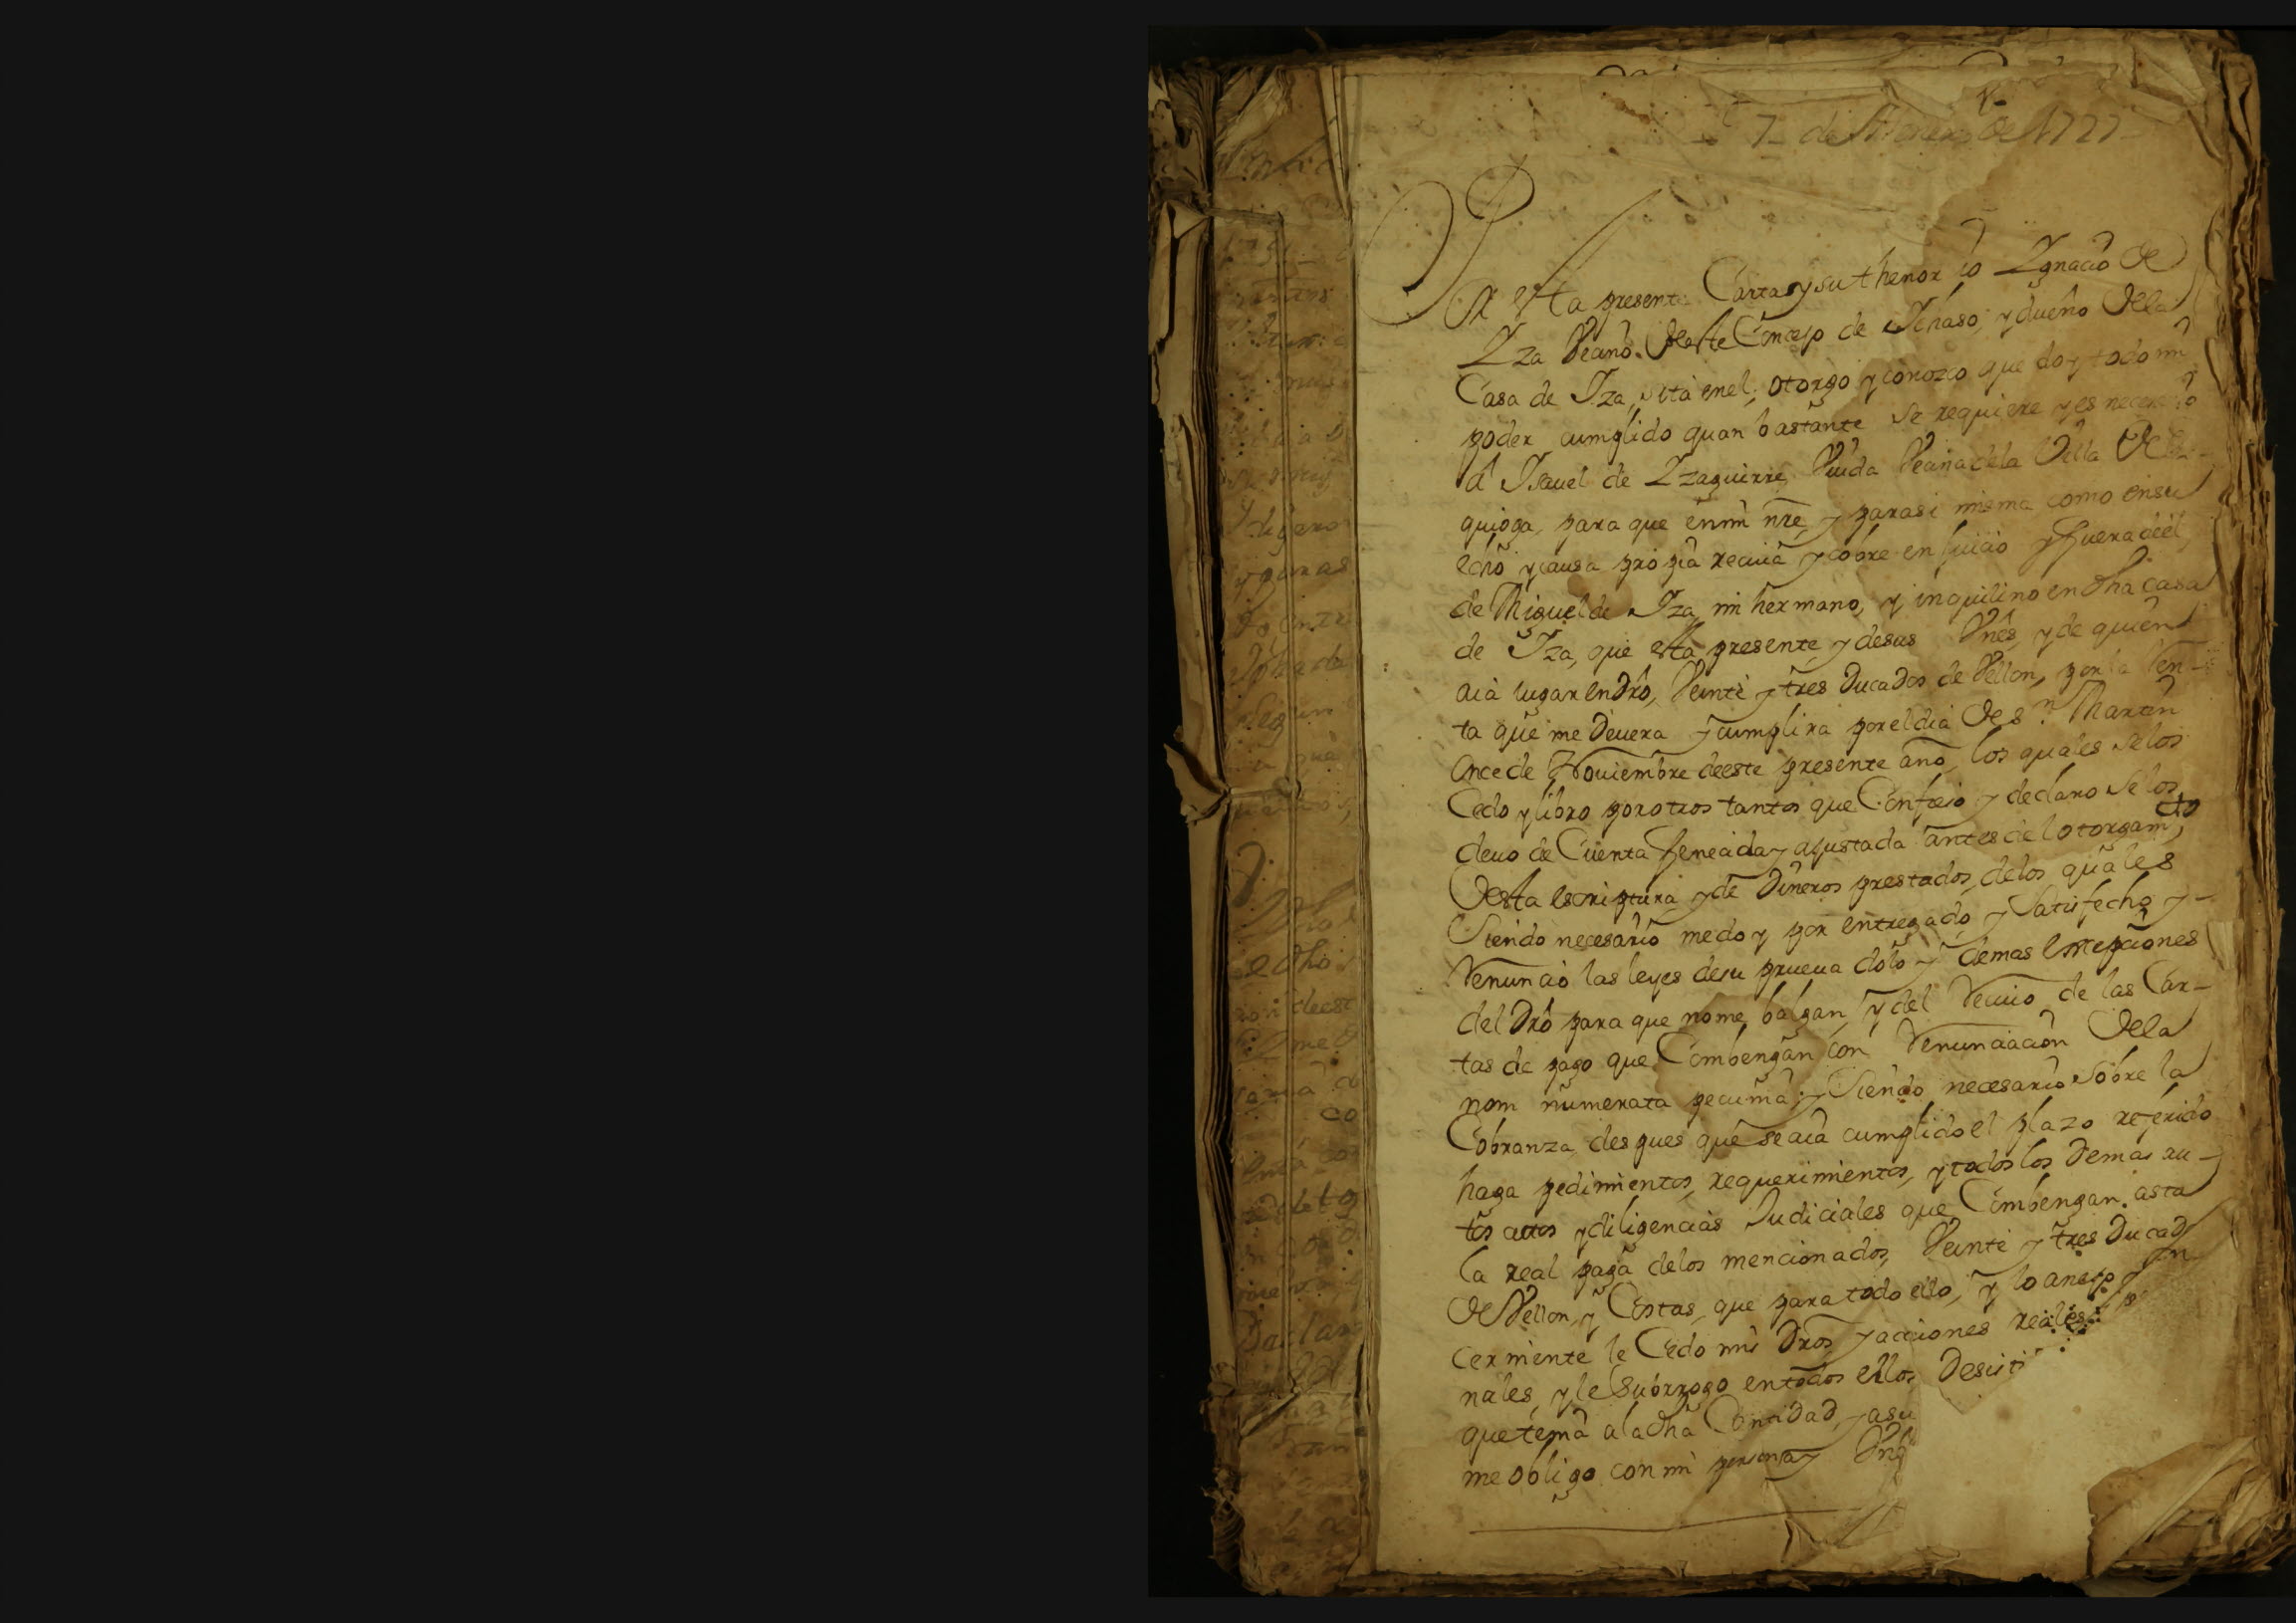 7 de Henero de 1727
Por esta presente Carta y su thenor io Ygnacio de
Yza Vecino deeste Concejo de Ychaso, y dueño dela
Casa de Yza, sita enel, otorgo y conozco que doy todo mi
poder cumplido quan bastante se requiere y es necesario
a Ysauel de Yzaguirre Viuda Vecina dela Villa de
quioga, para que enmi nre, y parasi misma como ensu
echo y causa propia reciuia y cobre en juicio y fuera deel,
de Miguel de Yza mi hermano, y inquilino en dha casa
de Yza, que esta presente y desus Vnes, y de quien
aia lugar en dro, Veinte y tres Ducados de Vellon, por la Ren-
ta que me deuera y cumplira por el dia de Sn. Martin
Once de Nouiembre deeste presente año, los quales selos
Cedo y libro por otros tantos que Confieso y declaro selos
deuo de Cuenta fenecida y ajustada antes del otorgamto
desta escriptura y de Dineros prestados, delos quales
Siendo necesario me doy por entregado y Satisfecho y-
Renuncio las leyes desu prueua dolo y demas Excepciones
del Dro para que nome balgan, y del Reciuo de las Car-
tas de pago que Combengan con Renunciacion dela
nom numerata pecunia; y Siendo necesario sobre la
Cobranza, despues que se aia cumplido el plazo referido
haga pedimientos, requerimientos, y todos los demas au-
tos autos y diligencias Judiciales que Combengan. asta
la real paga delos mencionados, Veinte y tres Ducad
de Vellon, y Costas, que para todo ello, y lo anejo y
cerniente le Cedo mis Dros y acciones reales
nales, y le Subrrogo entodos ellos Desisti
que tenia ala dha Cantidad, y asu
me obligo con mi persona y Vns